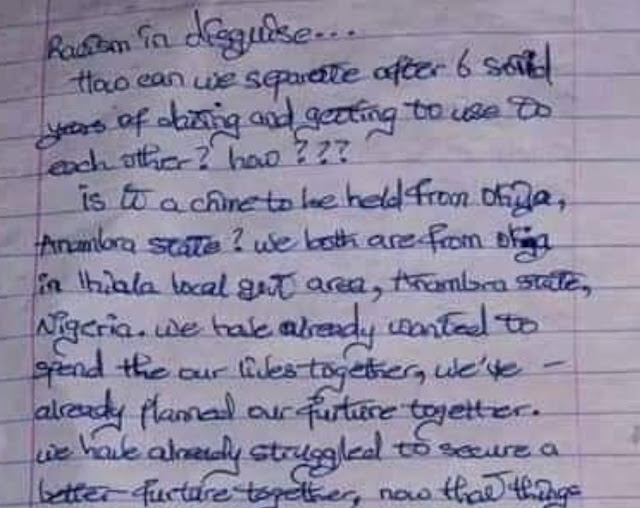 Racism in disguise...
How can we separate after 6 solid
years of dating and getting to use to
each other? how ???
is it a crime to be held from Okija,
Anambra state? we both are from Okija
in Ihiala local govt area, Anambra state,
Nigeria. we have already wanted to
spend the our lives together, we've -
already planned our furture together.
we have already struggled to secure a
better furture together, now that things